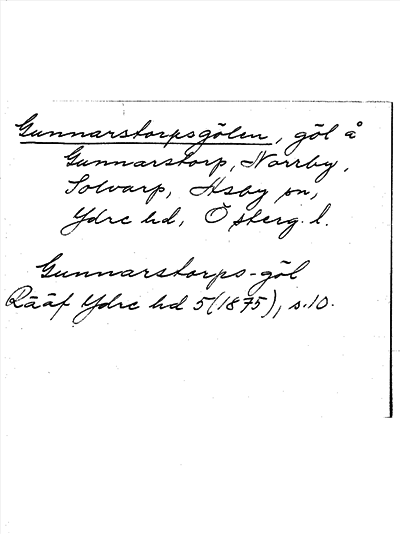 Gunnarstorpsgölen, göl å
Gunnarstorp, Norrby,
Solvarp, Asby sn,
Ydre hd, Österg. l.
Gunnarstorps-göl
Rääf Ydre hd 5 (1875), s. 10.